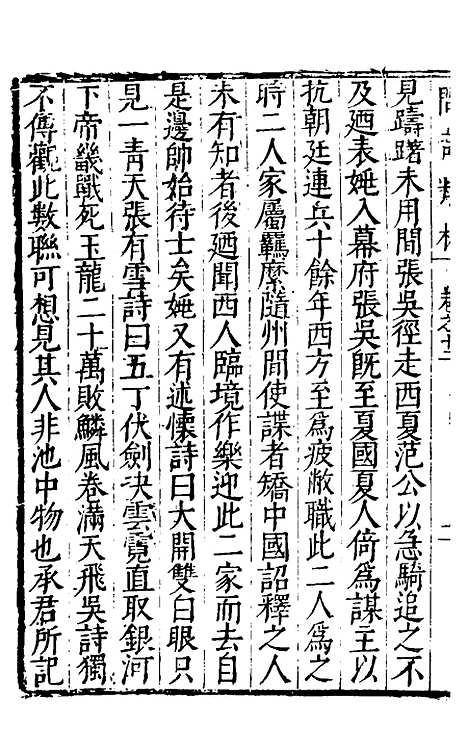 見躊躇未用間張吳徑走西夏范公以急騎追之不
及廼表姚入幕府張吳既至夏國夏人倚為謀主以
抗朝廷連兵十餘年西方至為疲敝職此二人為之
時二人家屬羈縻隨州間使諜者矯中國詔釋之人
未有知者後廼聞西人臨境作樂迎此二家而去自
是邊帥始待士矣姚又有述懷詩曰大開雙白眼只
見一青天張有雪詩曰五丁仗劍決雲霓直取銀河
下帝畿戰死玉龍二十萬敗鱗風卷滿天飛吳詩獨
不傳觀此數聯可想見其人非池中物也承君所記